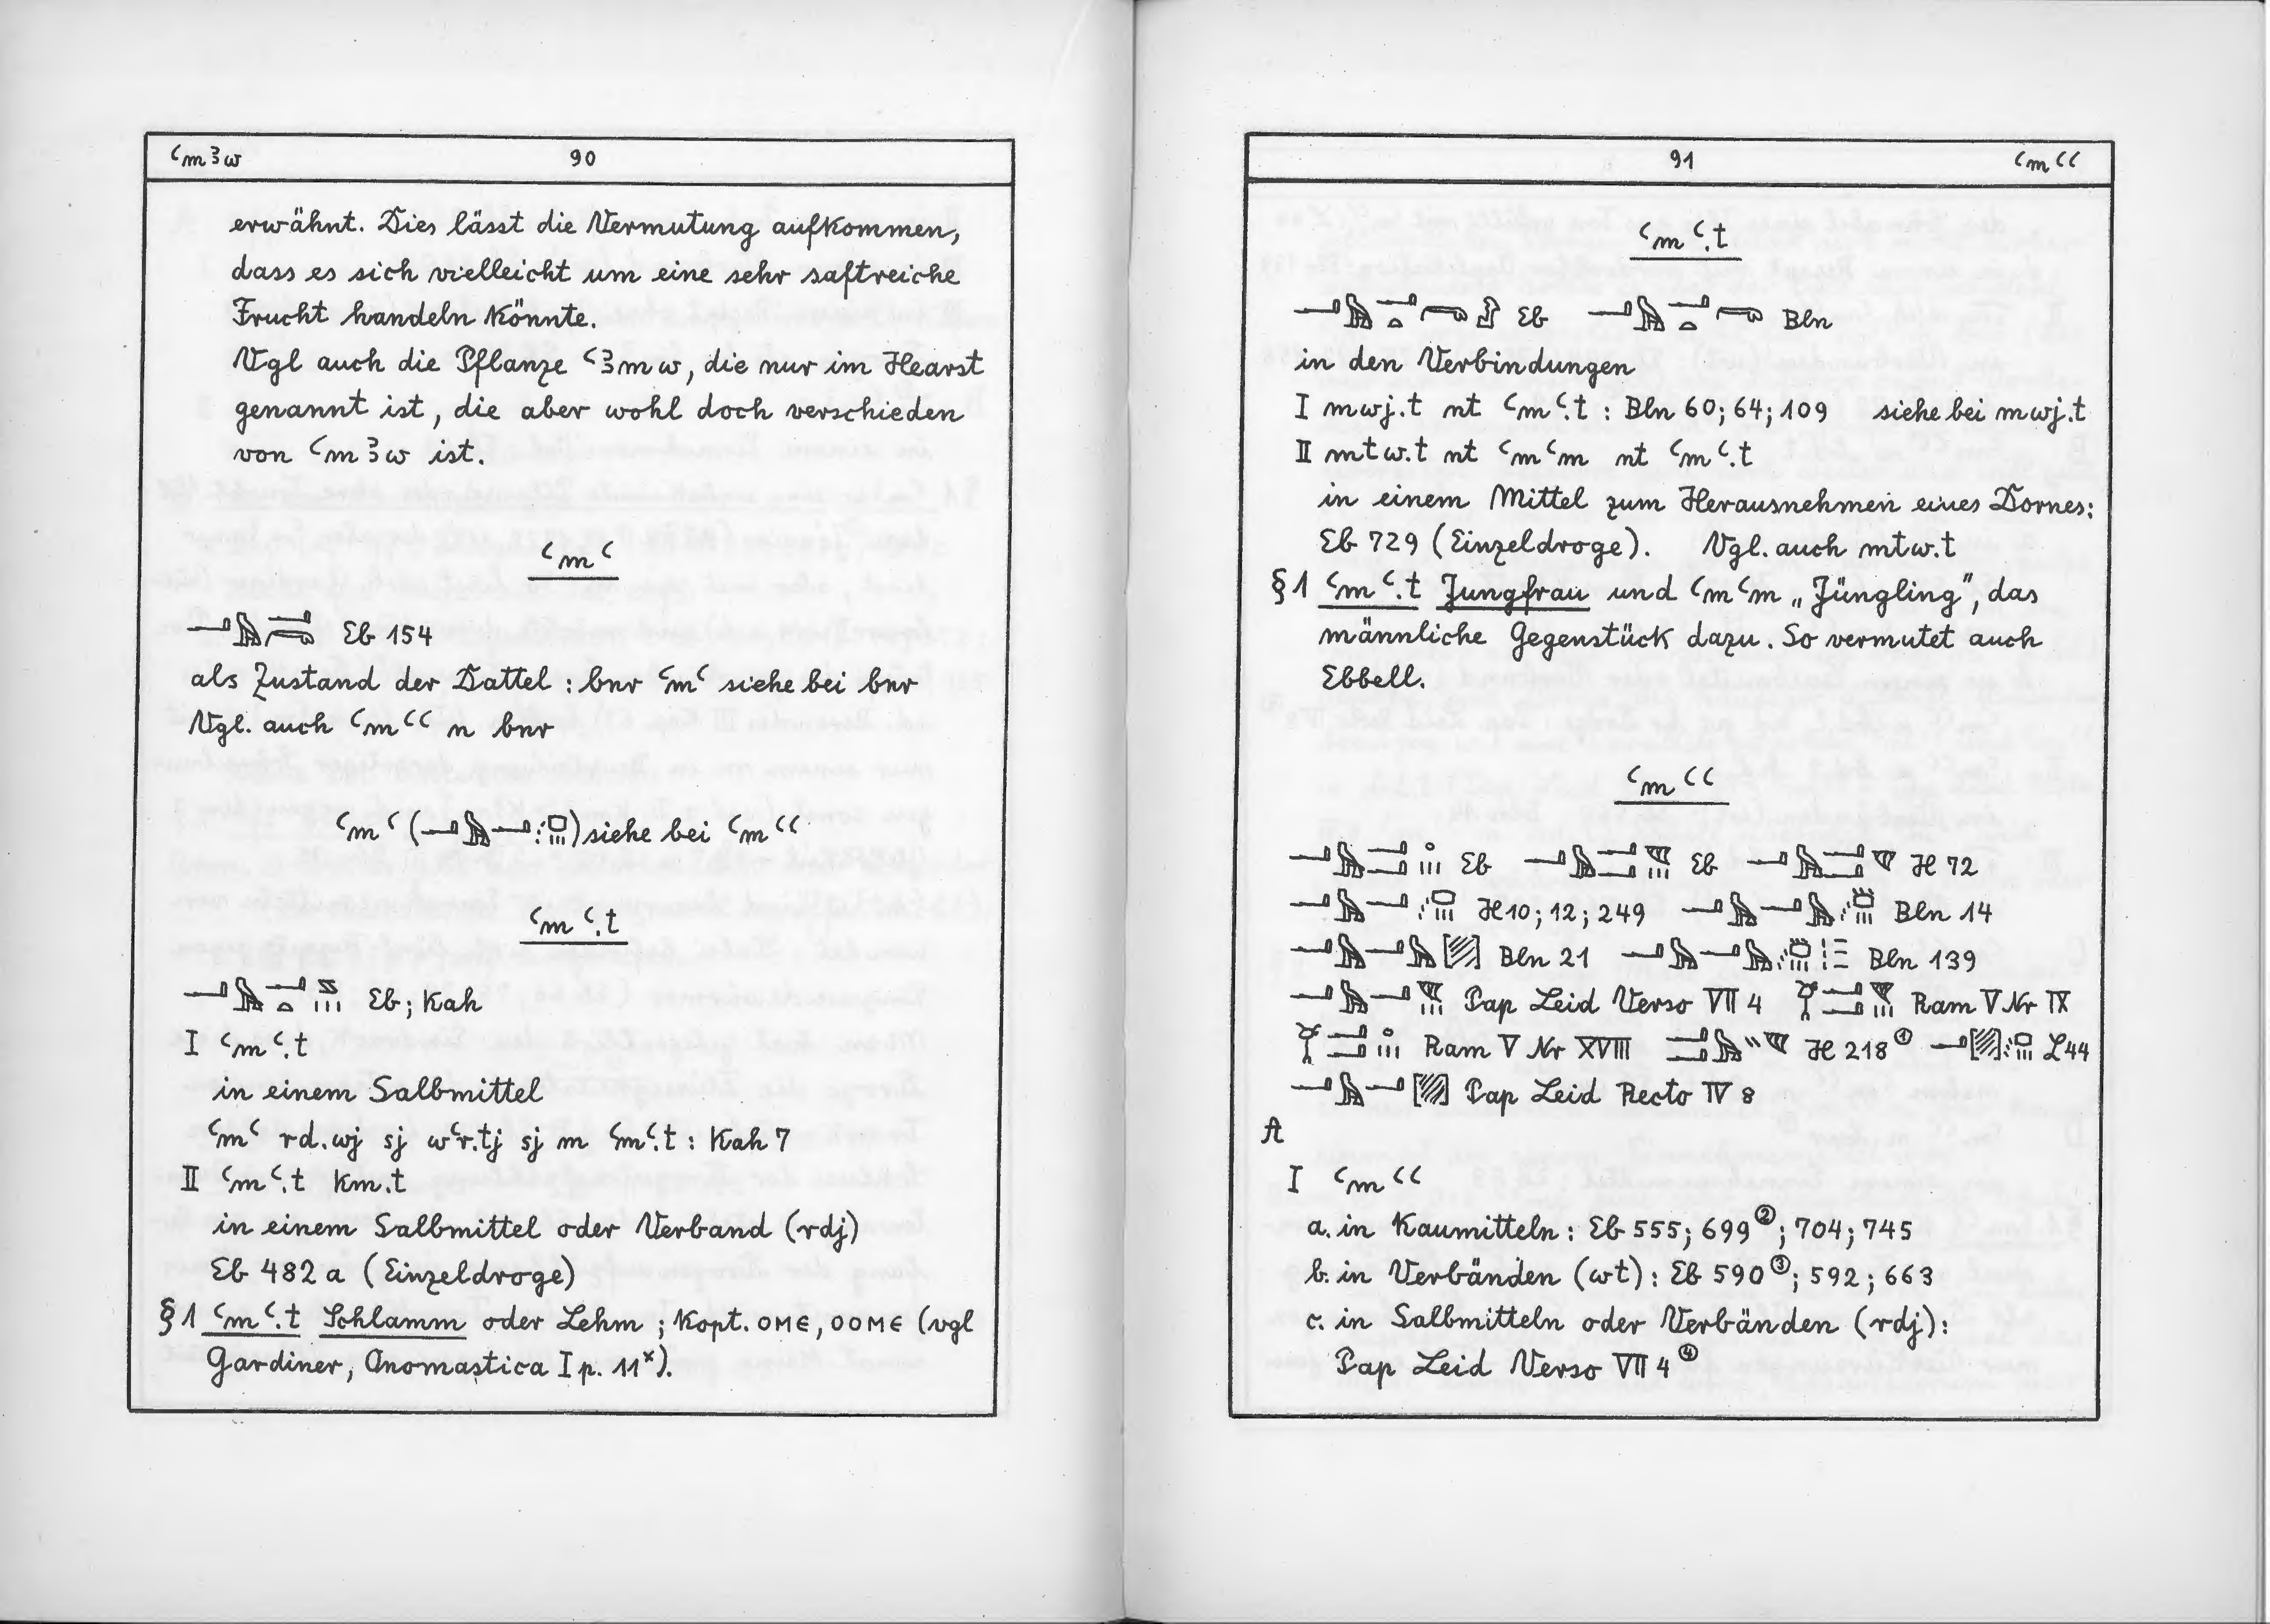 ꜥmꜣw 90
erwähnt. Dies lässt die Vermutung aufkommen,
dass es sich vielleicht um eine sehr saftreiche
Frucht handeln könnte.
Vgl auch die Pflanze ꜥꜣmw, die nur im Hearst
genannt ist, die aber wohl doch verschieden
von ꜥmꜣw ist.
ꜥmꜥ
Eb 154
als Zustand der Dattel : bnr ꜥmꜥ siehe bei bnr
Vgl. auch ꜥmꜥꜥ n bnr
ꜥmꜥ ( ) siehe bei ꜥmꜥꜥ
ꜥmꜥ.t
Eb; Kah
I ꜥmꜥ.t
in einem Salbmittel
ꜥmꜥ rd.wj sj wꜥr.tj sj m ꜥmꜥ.t : Kah 7
II ꜥmꜥ.t km.t
in einem Salbmittel oder Verband (rdj)
Eb 482 a (Einzeldroge)
§ 1 ꜥmꜥ.t Schlamm oder Lehm ; Kopt. ⲟⲙⲉ, ⲟⲟⲙⲉ (vgl
Gardiner, Onomastica I p. 11ˣ).
91 ꜥmꜥꜥ
ꜥmꜥ.t
Eb Bln
in den Verbindungen
I mwj.t nt ꜥmꜥ.t : Bln 60; 64; 109 siehe bei mwj.t
II mtw.t nt ꜥmꜥm nt ꜥmꜥ.t
in einem Mittel zum Herausnehmen eines Dornes:
Eb 729 (Einzeldroge). Vgl. auch mtw.t
§ 1 ꜥmꜥ.t Jungfrau und ꜥmꜥm „Jüngling", das
männliche Gegenstück dazu. So vermutet auch
Ebbell.
ꜥmꜥꜥ
Eb Eb H 72
H 10; 12; 249 Bln 14
Bln 21 Bln 139
Pap Leid Verso VII 4 Ram V Nr IX
Ram V Nr XVIII H 218① L 44
Pap Leid Recto IV 8
A
I ꜥmꜥꜥ
a. in Kaumitteln : Eb 555; 699②; 704; 745
b. in Verbänden (wt) : Eb 590③; 592; 663
c. in Salbmitteln oder Verbänden (rdj):
Pap Leid Verso VII 4④